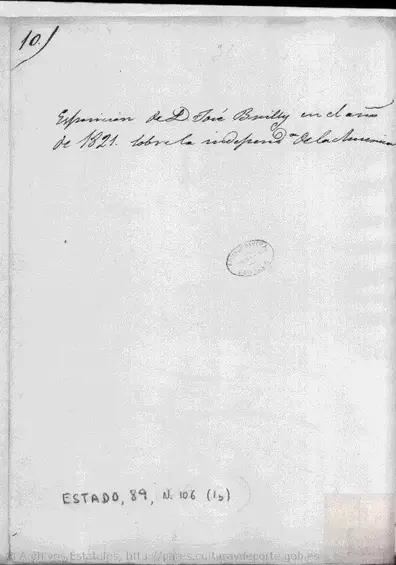 10.
Esposicion de D José Brilly en el año
de 1821. sobre la independ.ª de la America
ESTADO, 89, N. 106 (1b)
Archivos Estatales, http://pares.culturaydeporte.gob.es